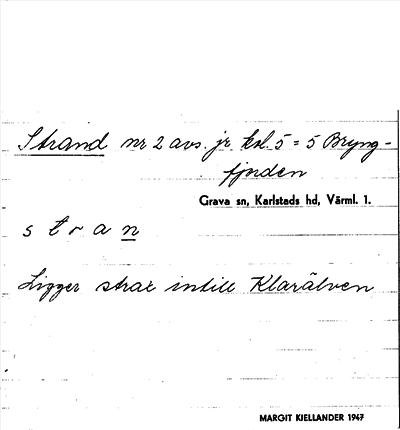 Strand nr 2 avs. jr. kol. 5 = 5 Bryng-
fjorden
Grava sn, Karlstads hd, Värml. l.
s t r a n
Ligger strax intill Klarälven
MARGIT KJELLANDER 1947